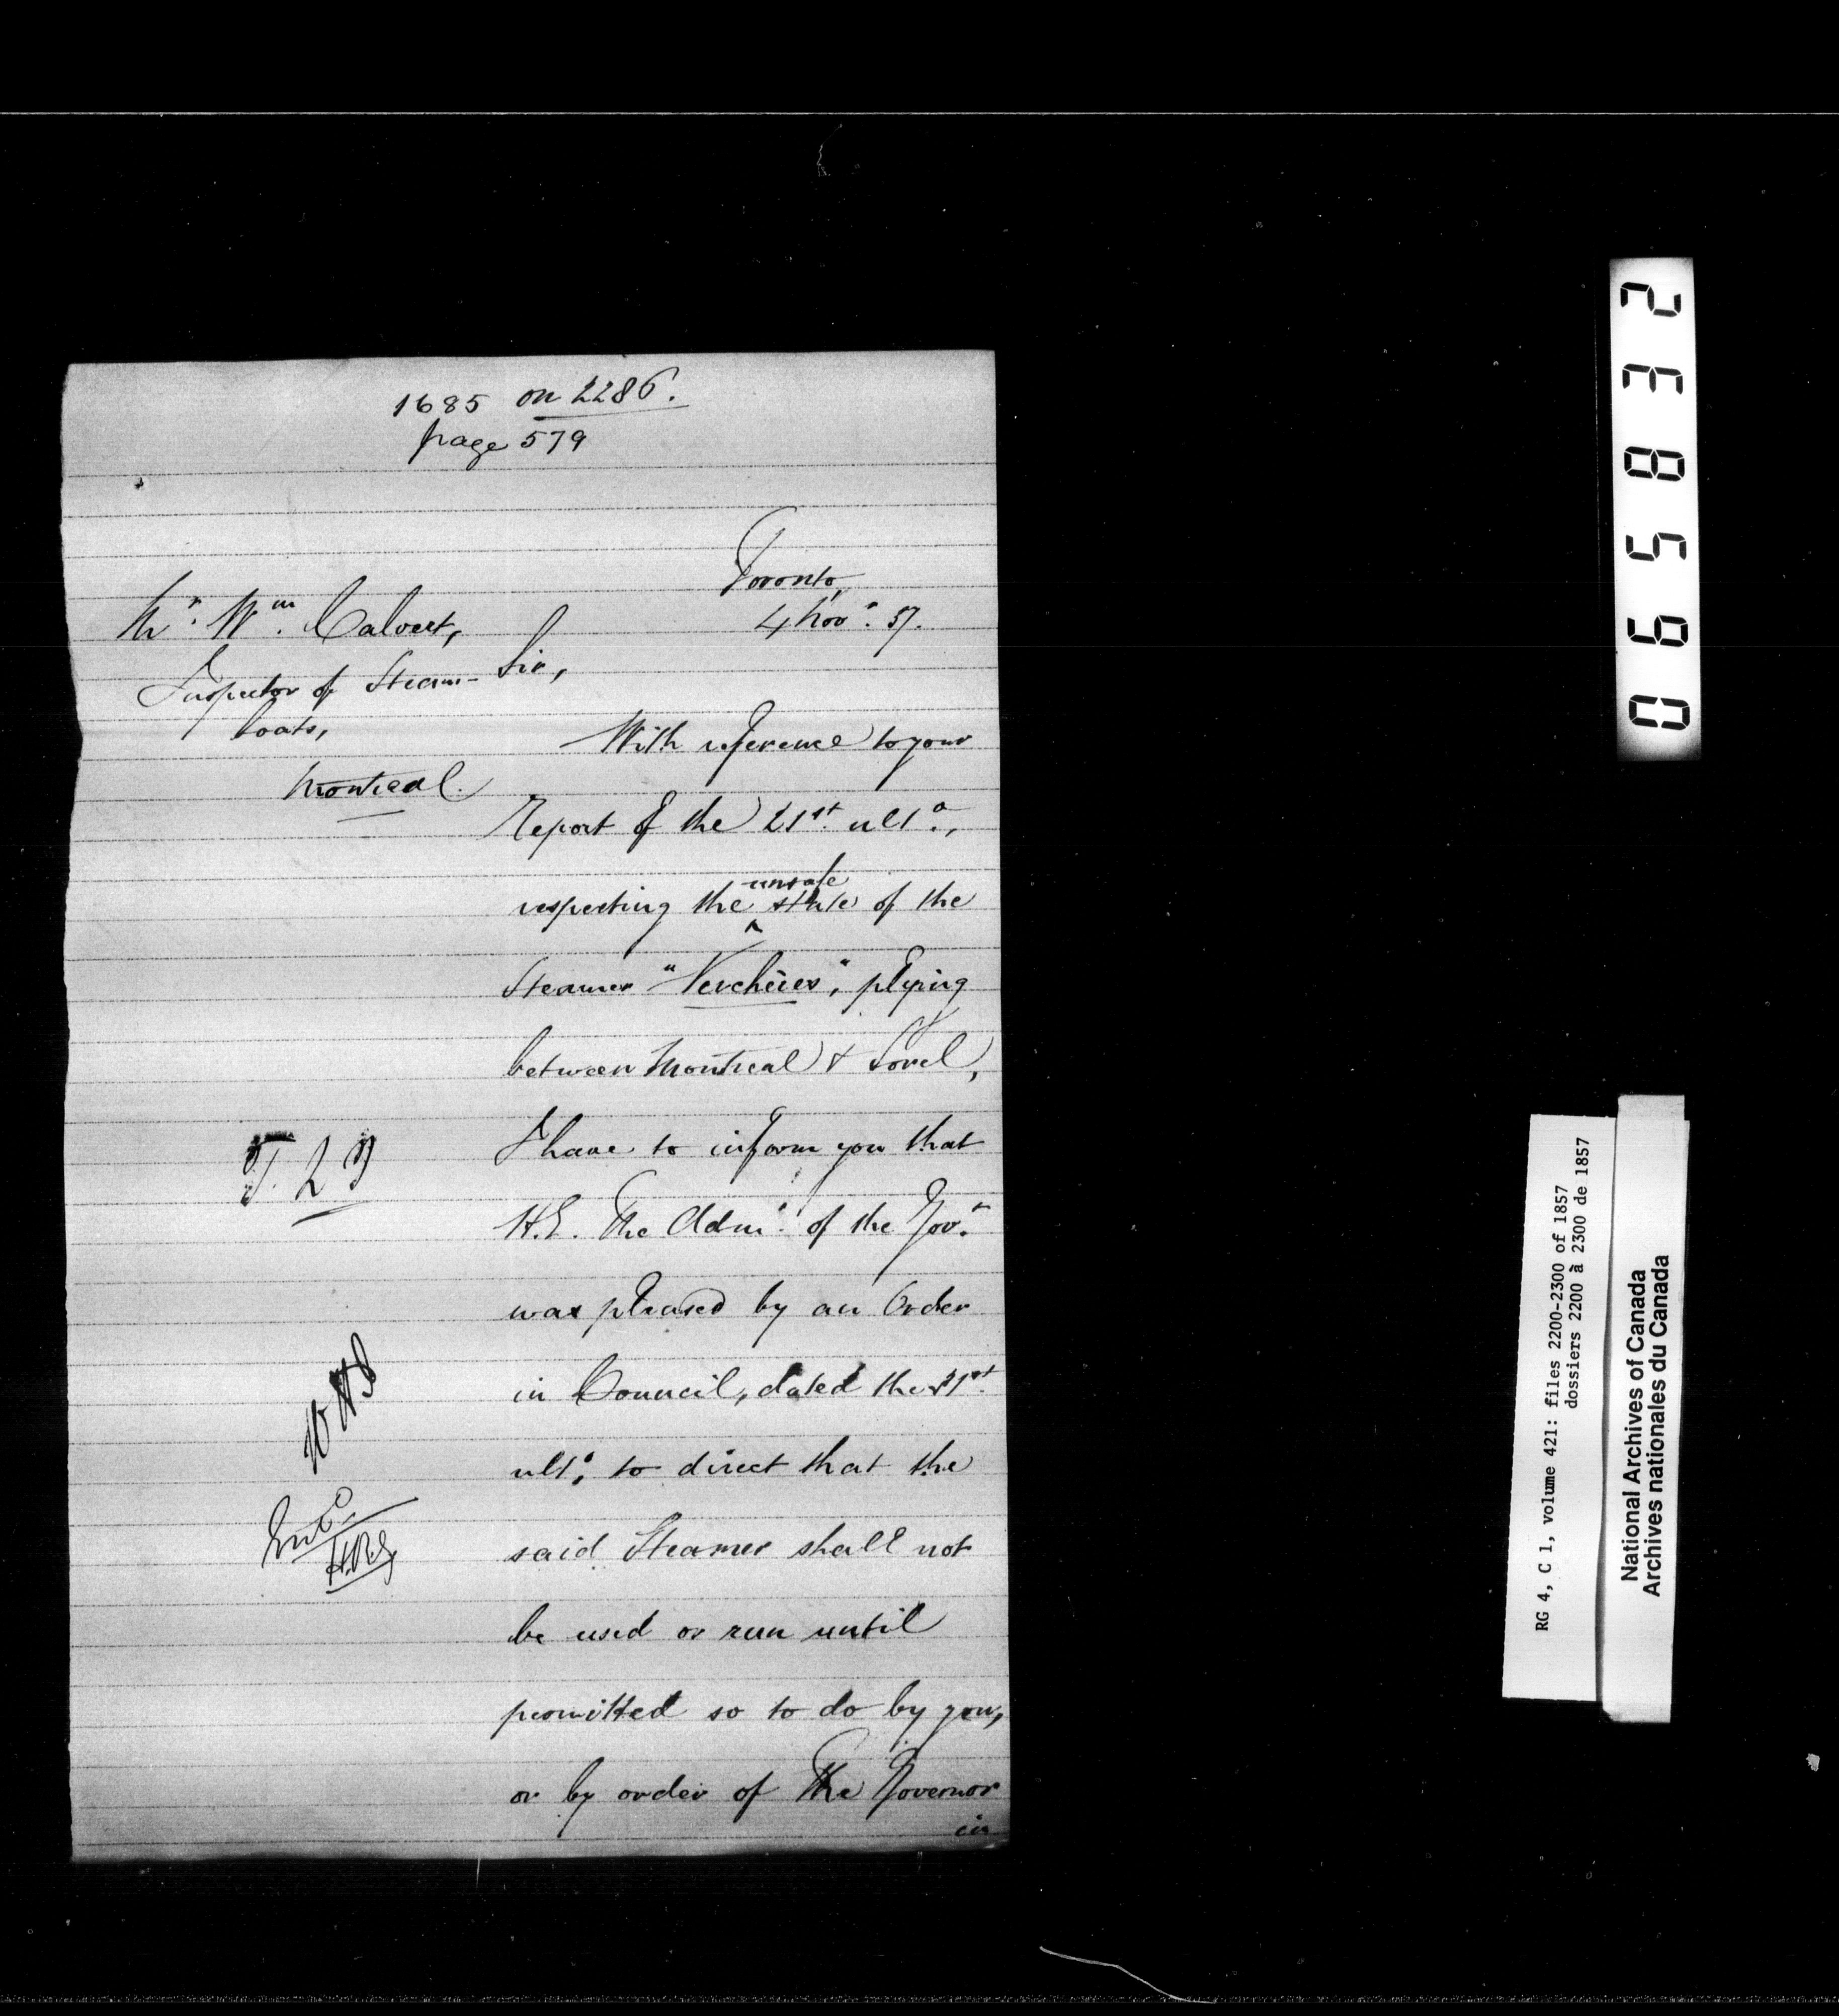 1685 on 2286.
page 579
Toronto,
4 Nov.r 57.
Mr. Wm. Calvert,
Inspector of Steam-
boats,
Montreal.
Sir,
With reference to your
Report of the 21st. ulto.,
respecting the unsafe state of the
Steamer "Verchères", plying
between Montreal & Sorel,
I have to inform you that
H.E. The Admr. of the Govt.
was pleased by an Order
in Council, dated the 31st.
ulto. to direct that the
said Steamer shall not
be used or run until
permitted so to do by you,
or by order of The Governor
in
065832
RG 4, C 1, volume 421: files 2200-2300 of 1857
dossiers 2200 à 2300 de 1857
National Archives of Canada
Archives nationales du Canada